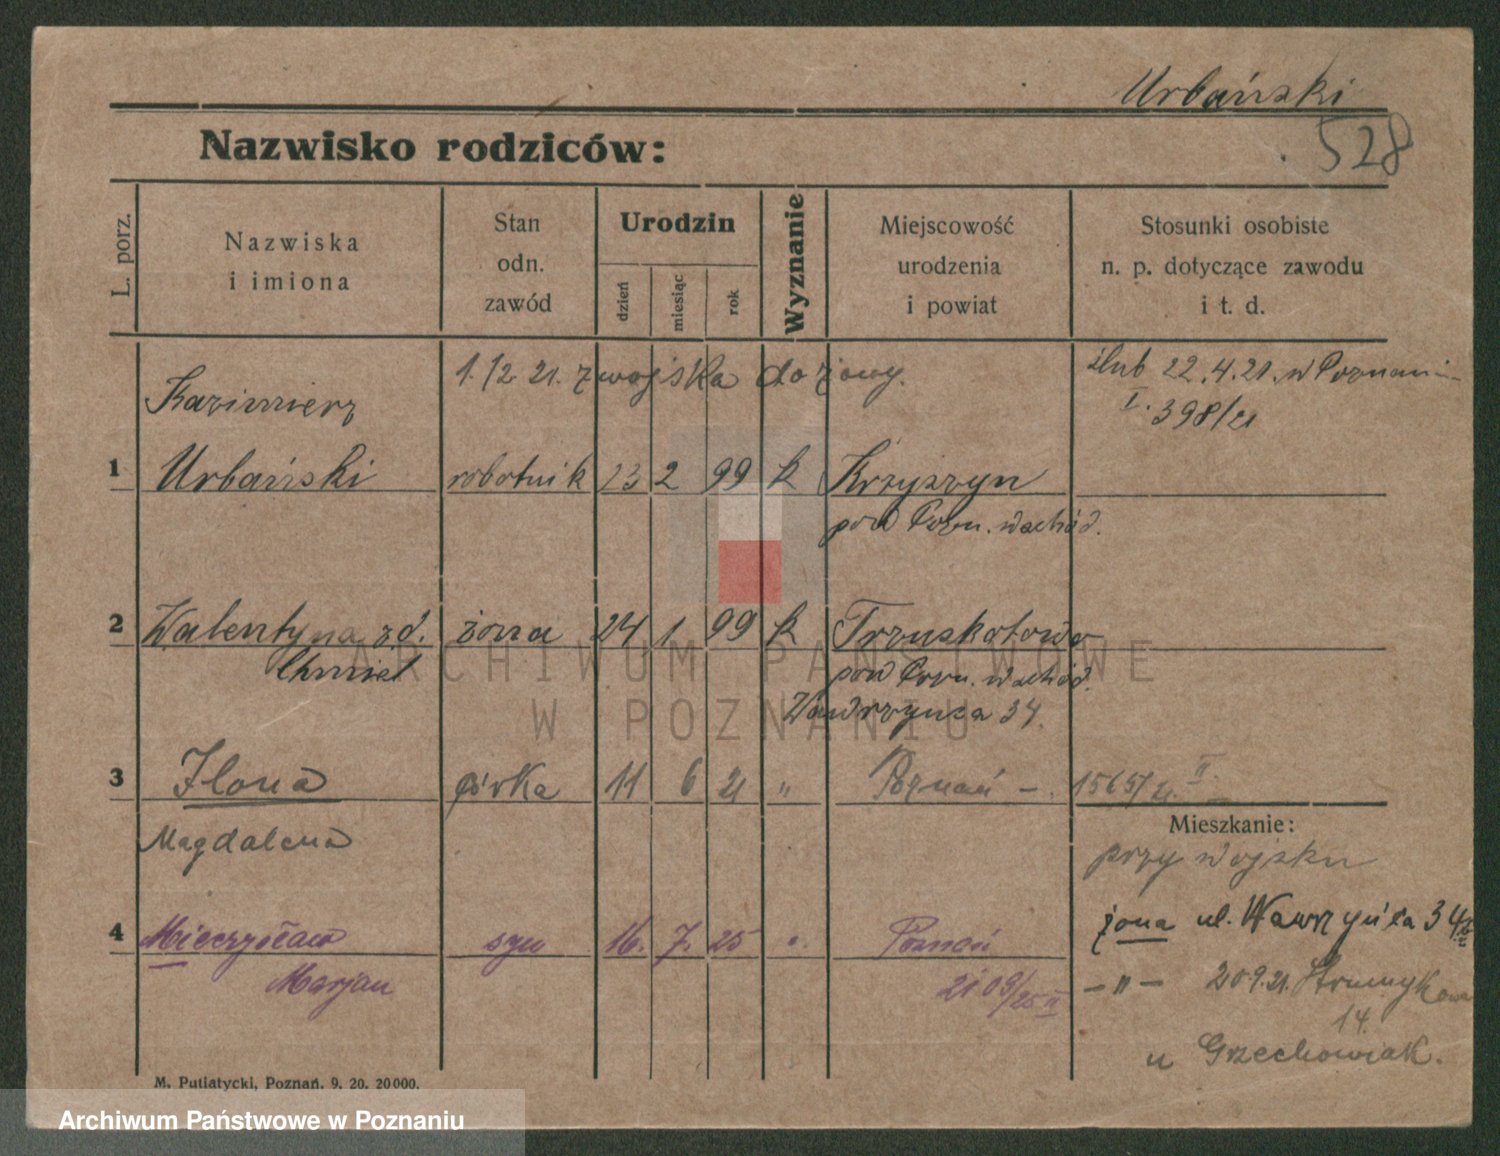 Urbański
528
Nazwisko rodziców:
L. porz.
Nazwiska
i imiona
Stan
odn.
zawód
Urodzin
dzień
miesiąc
rok
Wyznanie
Miejscowość
urodzenia
i powiat
Stosunki osobiste
n. p. dotyczące zawodu
i t. d.
1./2. 21. z wojska do żony.
ślub 22.4.21. w Poznaniu
I. 398/21
Kazimierz
1 Urbański robotnik 23 2 99 k Krzyszyn
pow Pozn. wschód.
2 Walentyna zd. żona 24 1 99 k Trzuskotowo
Chmiel pow Pozn. wschód.
Wawrzynca 34.
3 Ilona córka 11 6 21 " Poznań – 1565/21 II
Magdalena
Mieszkanie:
przy wojsku
żona ul. Wawrzyńca 34
4 Mieczysław syn 16. 7. 25 " Poznań
Marjan 2108/25 II
– " – 20.9.21.
14.
u Grzechowiak.
M. Putiatycki, Poznań. 9. 20. 20000.
ARCHIWUM PAŃSTWOWE
W POZNANIU
Archiwum Państwowe w Poznaniu